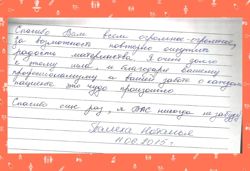 Спасибо Вам всем огромное-огромное,
за возможность повторно ощутить
радость материнства. Я очень долго
к этому шла и благодаря Вашему
профессионализму и Вашей заботе о каждом
пациенте это чудо произошло.
Спасибо еще раз, я Вас никогда не забуду
2015 г.